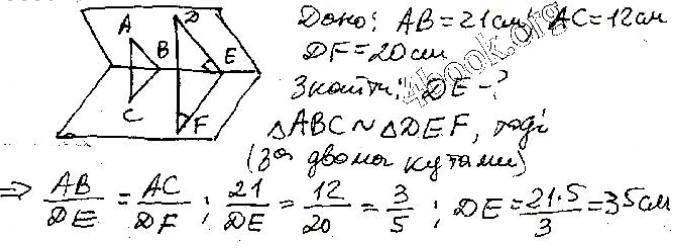 Дано: AB = 21 см, AC = 12 см
DF = 20 см
Знайти: DE - ?
△ABC ~ △DEF, тоді
(за двома кутами)
⇒ AB/DE = AC/DF ; 21/DE = 12/20 = 3/5 ; DE = 21·5/3 = 35 см
A
D
B
E
C
F
4book.org